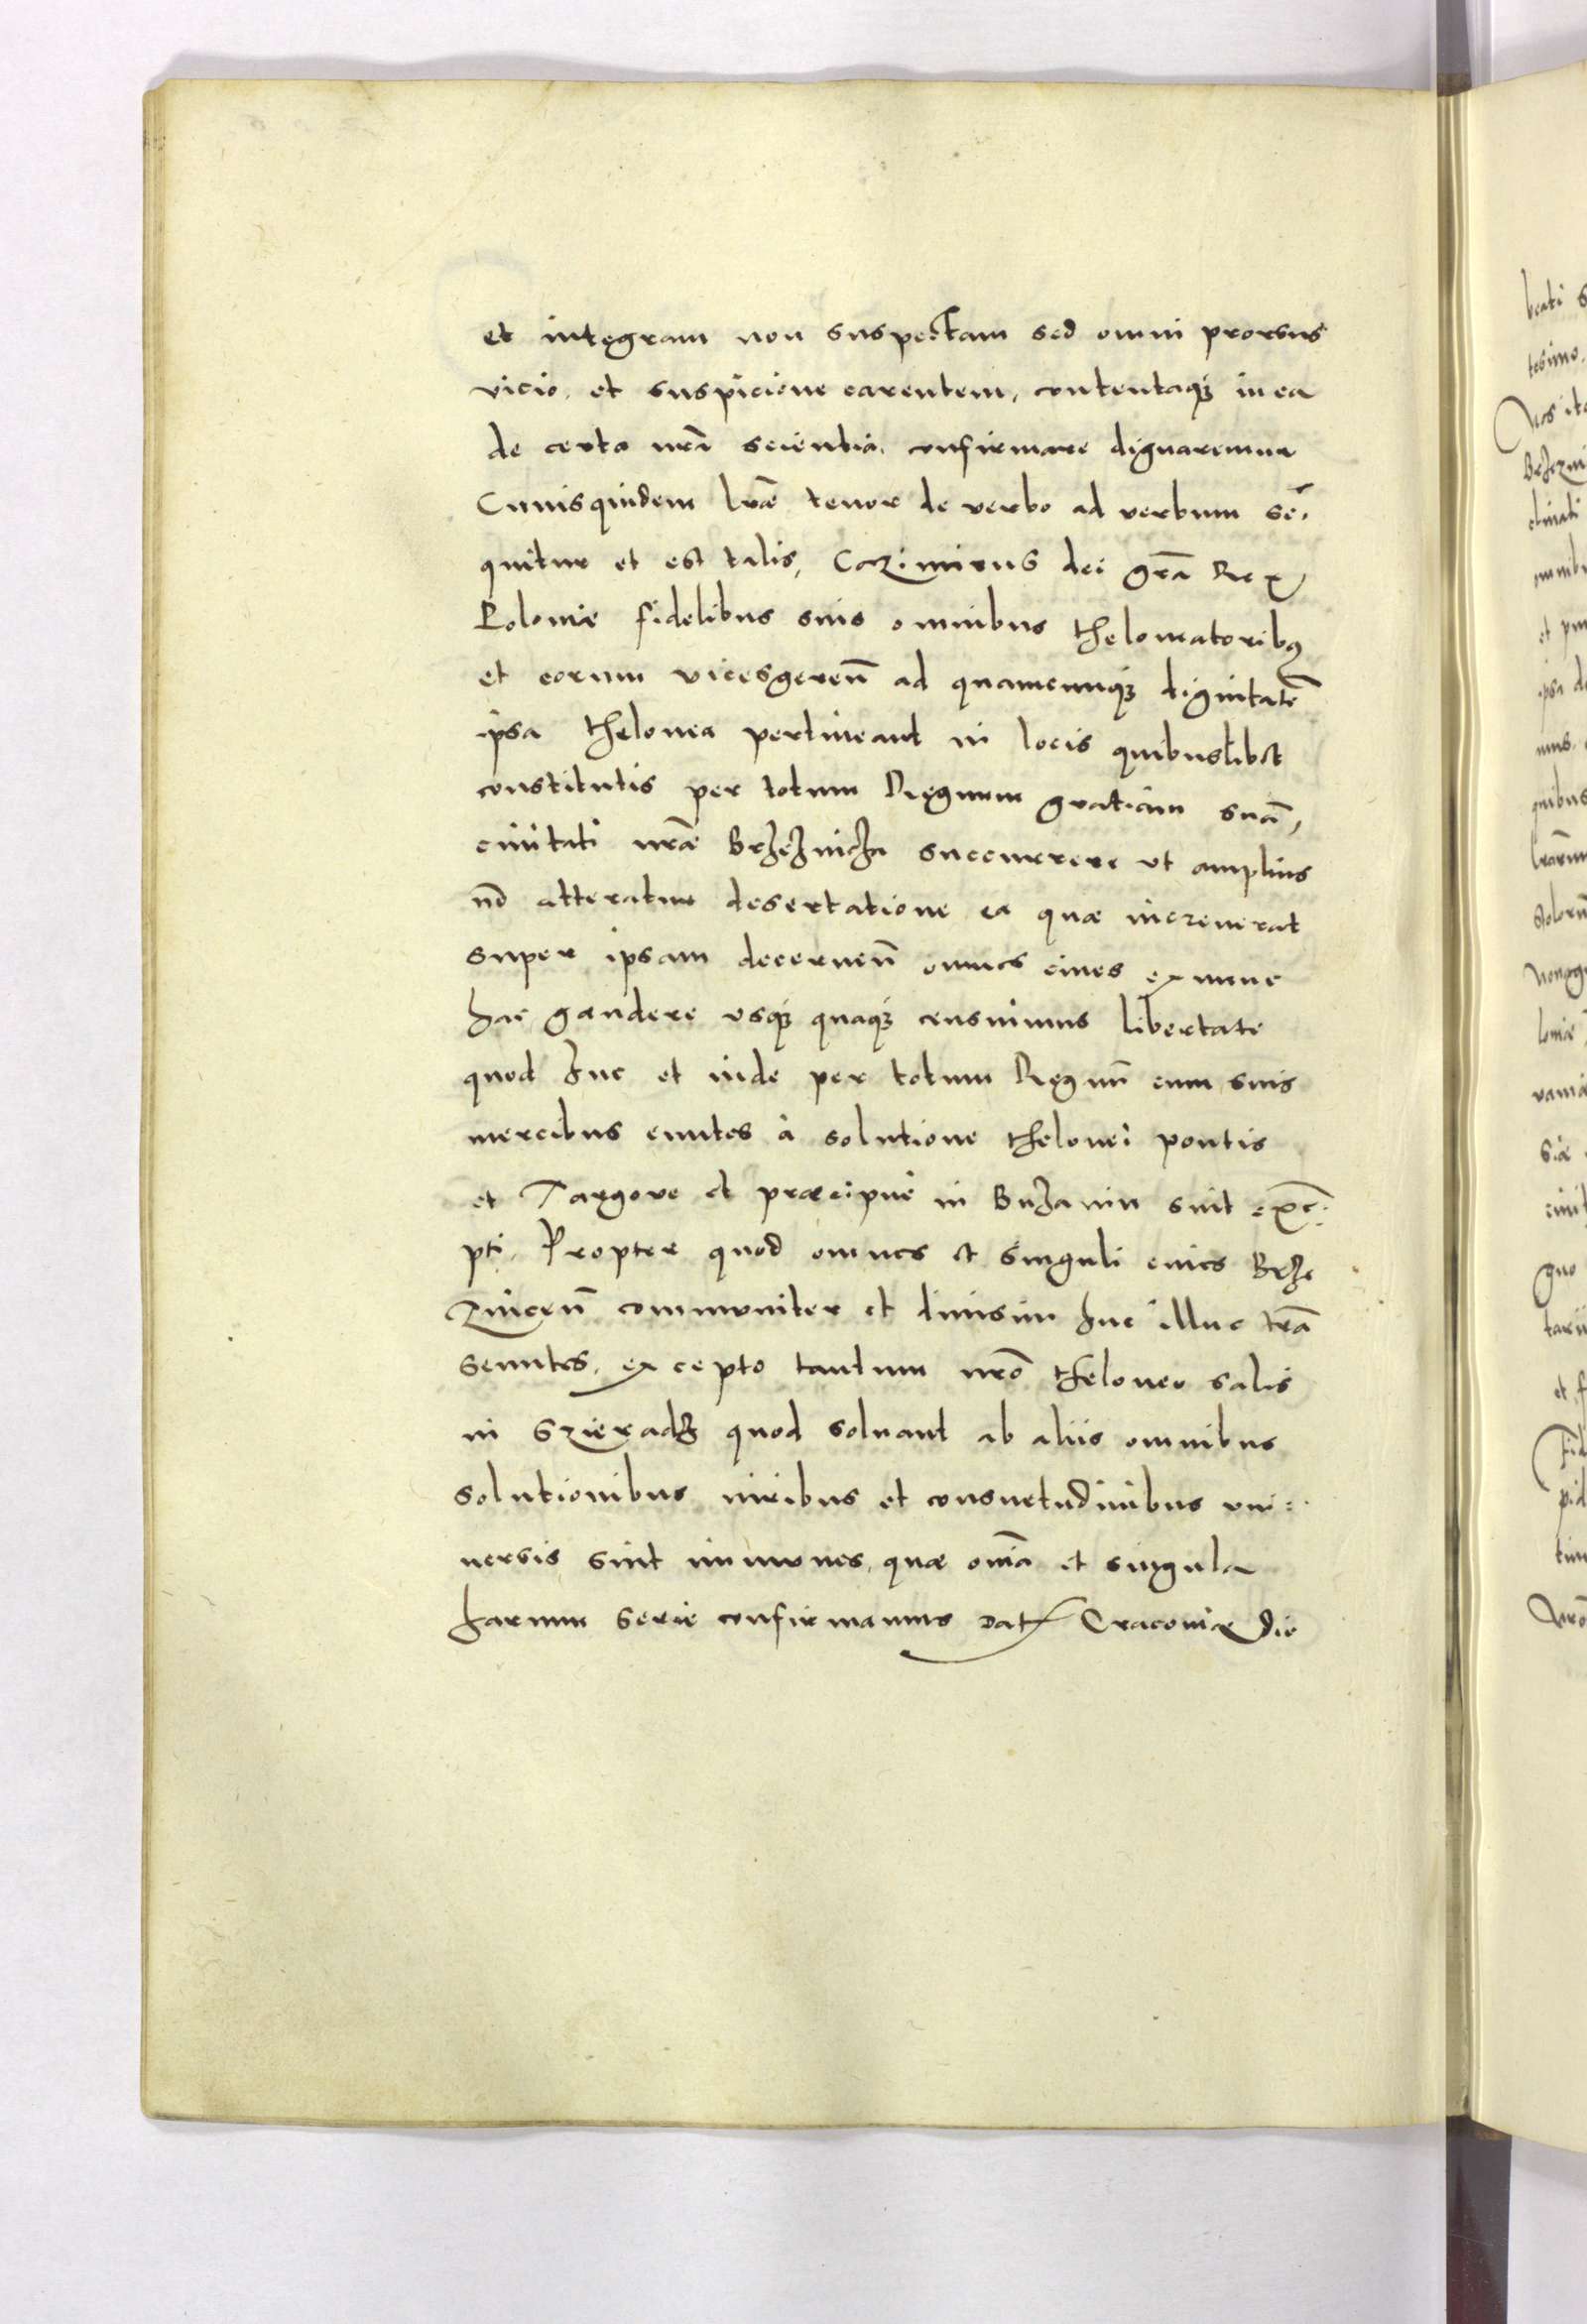 et integram non suspectam sed omni prorsus
vicio. et suspicione carentem, contentaqȝ in ea
de certa nrã scientia. confirmare dignaremur
Cuiusquidem lræ tenor de verbo ad verbum se-
quitur et est talis, Cazimirus dei grã Rex
Poloniæ fidelibus suis omnibus theloniatoribȝ
et eorum vicesgereñ ad quamcunqȝ dignitatẽ
ipsa thelonea pertineant in locis quibuslibet
constitutis per totum Regnum gratiam suã,
ciuitati nræ Brzeznicza succurrere vt amplius
nõ atteratur desertatione ea quæ increuerat
super ipsam decerneñ omnes ciues ex nunc
hac gaudere vsqȝ quaqȝ censuimus libertate
quod huc et inde per totum Regnũ cum suis
mercibus eũtes à solutione thelonei pontis
et Targove et præcipuè in Buzanin sint exce-
pti. Propter quod omnes et singuli ciues Brze
zniceñ communiter et diuisim huc illuc trã
seuntes. excepto tantum nrõ theloneo salis
in Szieradz quod soluant ab aliis omnibus
solutionibus iuribus et consuetudinibus vni-
uersis sint immunes. quæ omĩa et singula
harum serie confirmamus Dat Cracouiæ die

beati
tesimo.
Nos ita
Brzezni
clinati
omnibȝ
ipsa de
quibus
loniæ
uania
siæ
guo
et